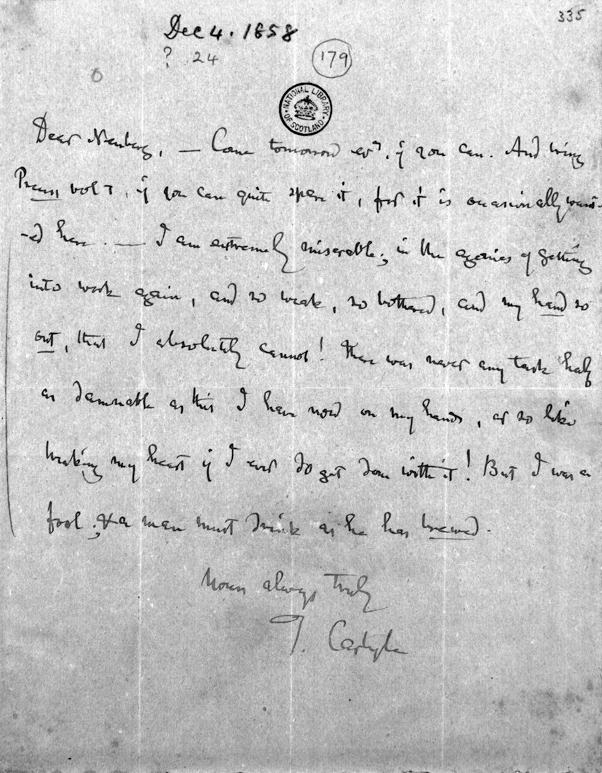 335
Dec 4. 1858
? 24
179
0
NATIONAL LIBRARY OF SCOTLAND
Dear Neuberg, — Come tomorrow evg, if you can. And bring
Preuss vol 7, if you can quite spare it, for it is occasionally want-
-ed here. — I am extremely miserable; in the agonies of getting
into work again, and so weak, so bothered, and my hand so
out, that I absolutely cannot! There was never any task half
as damnable as this I have now on my hands, or so like
breaking my heart if I ever do get done with it! But I was a
fool; & a man must drink as he has brewed.
Yours always truly
T. Carlyle